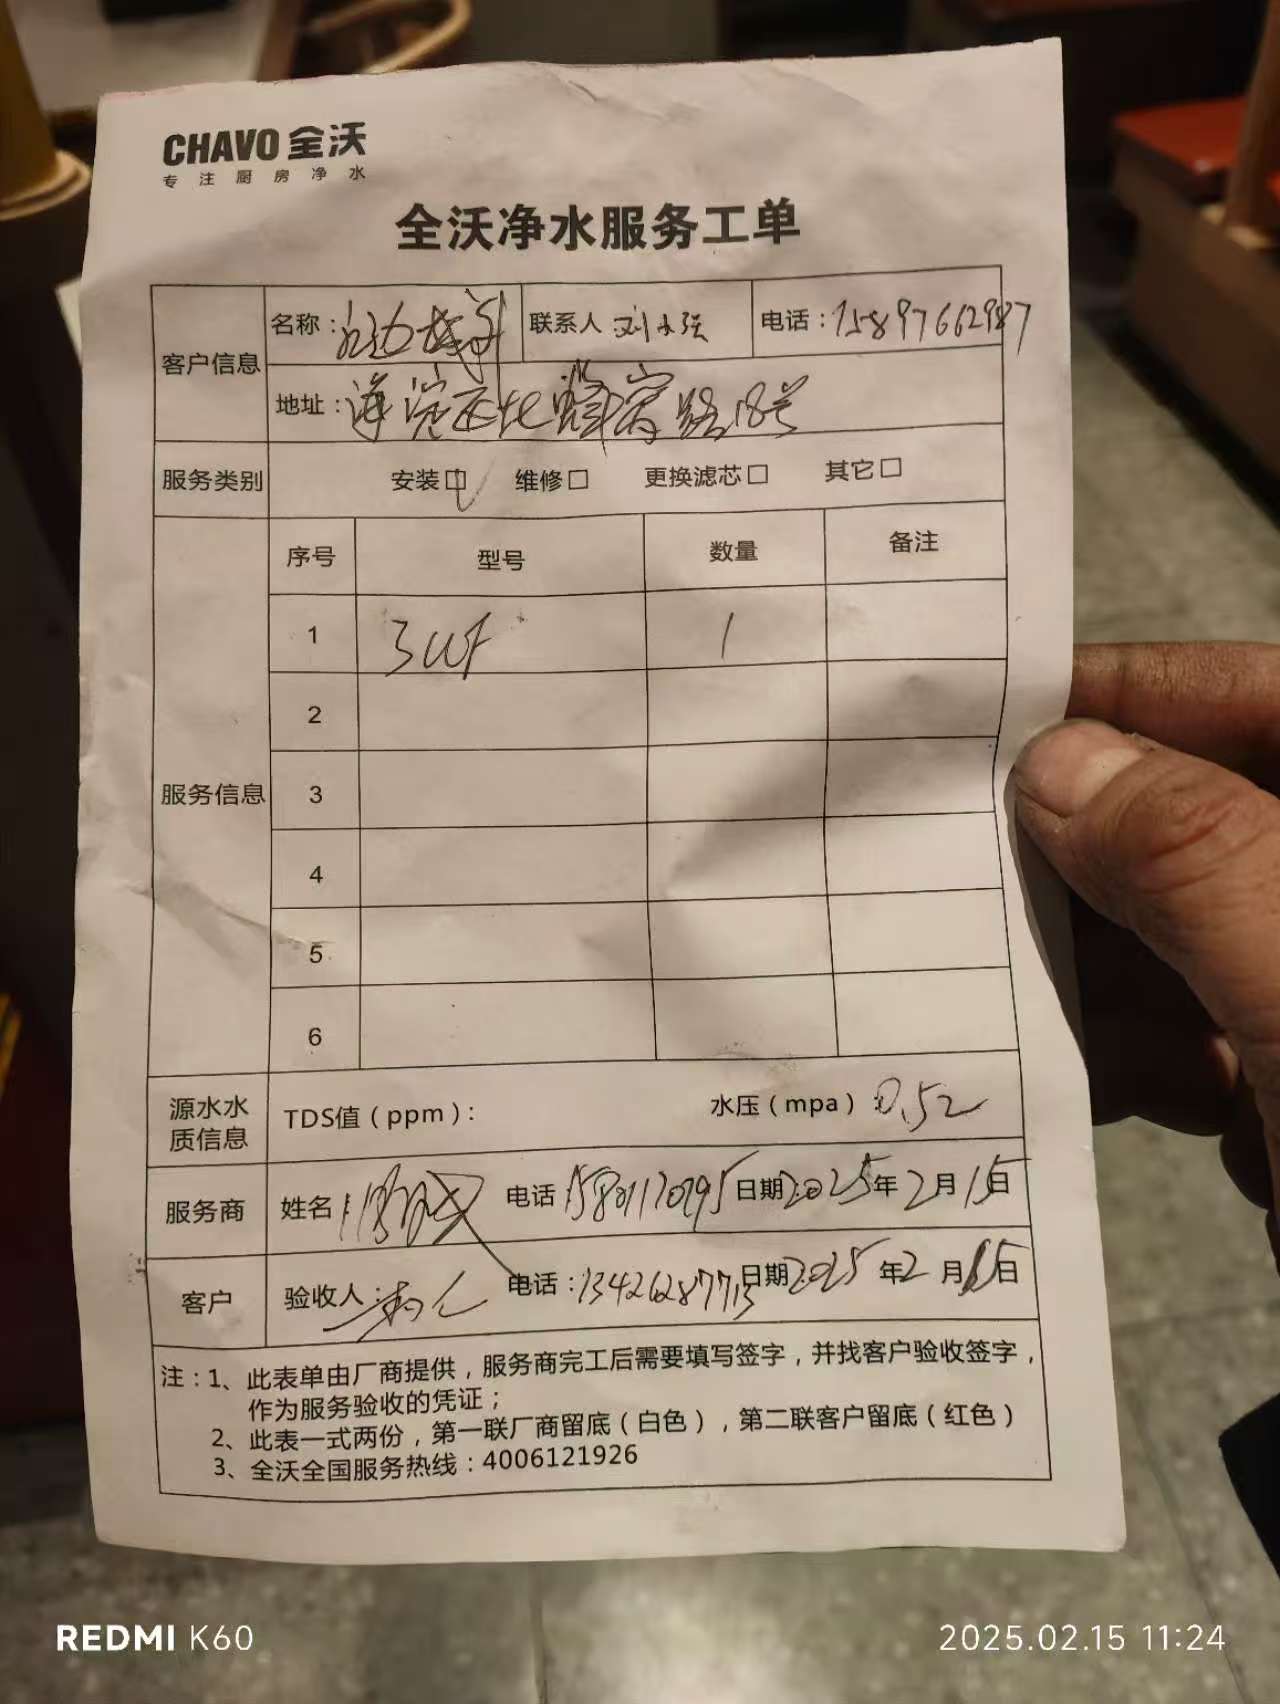 CHAVO 全沃
专注厨房净水
全沃净水服务工单
客户信息 名称： 联系人 刘小强 电话：15897662987
地址：海淀区北蜂窝路18号
服务类别 安装☑ 维修□ 更换滤芯□ 其它□
服务信息 序号 型号 数量 备注
1 3WF 1
2
3
4
5
6
源水水质信息 TDS值（ppm）： 水压（mpa）：0.52
服务商 姓名 电话 15801170795 日期2025年2月15日
客户 验收人： 电话：13426287713 日期2025年2月15日
注：1、此表单由厂商提供，服务商完工后需要填写签字，并找客户验收签字，
作为服务验收的凭证；
2、此表一式两份，第一联厂商留底（白色），第二联客户留底（红色）
3、全沃全国服务热线：4006121926
REDMI K60
2025.02.15 11:24